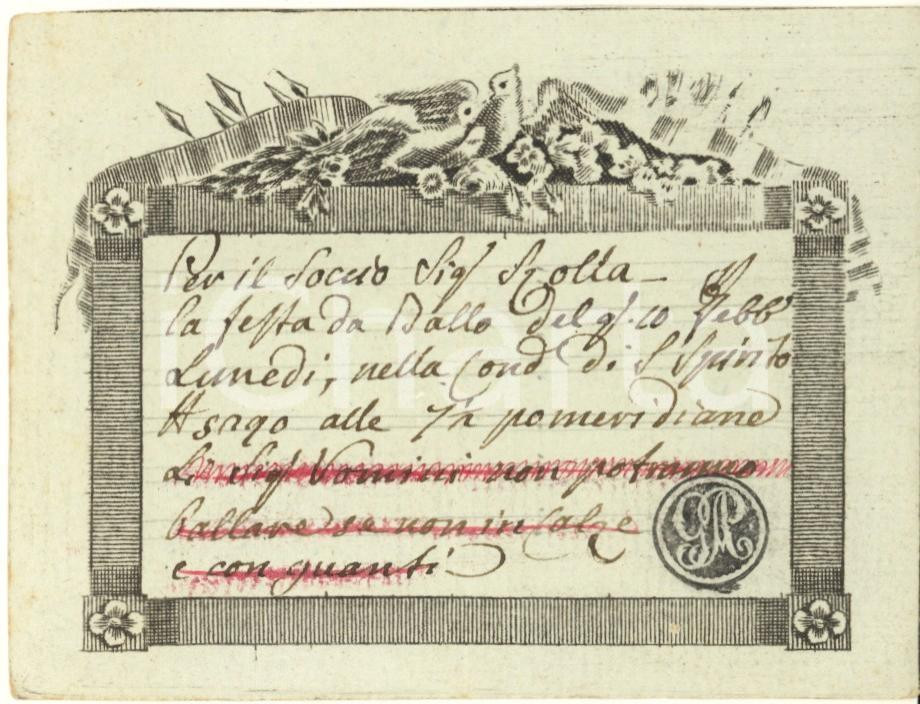 Per il Soccio Sigʳ Scolta
la festa da Ballo del gⁱ. 10 Febbº
Lunedi, nella Cond. di S Spirito
alle 7½ pomeridiane
Li Sigʳ Uomini non potranno
ballare se non in Calze
e con guanti
iCharta